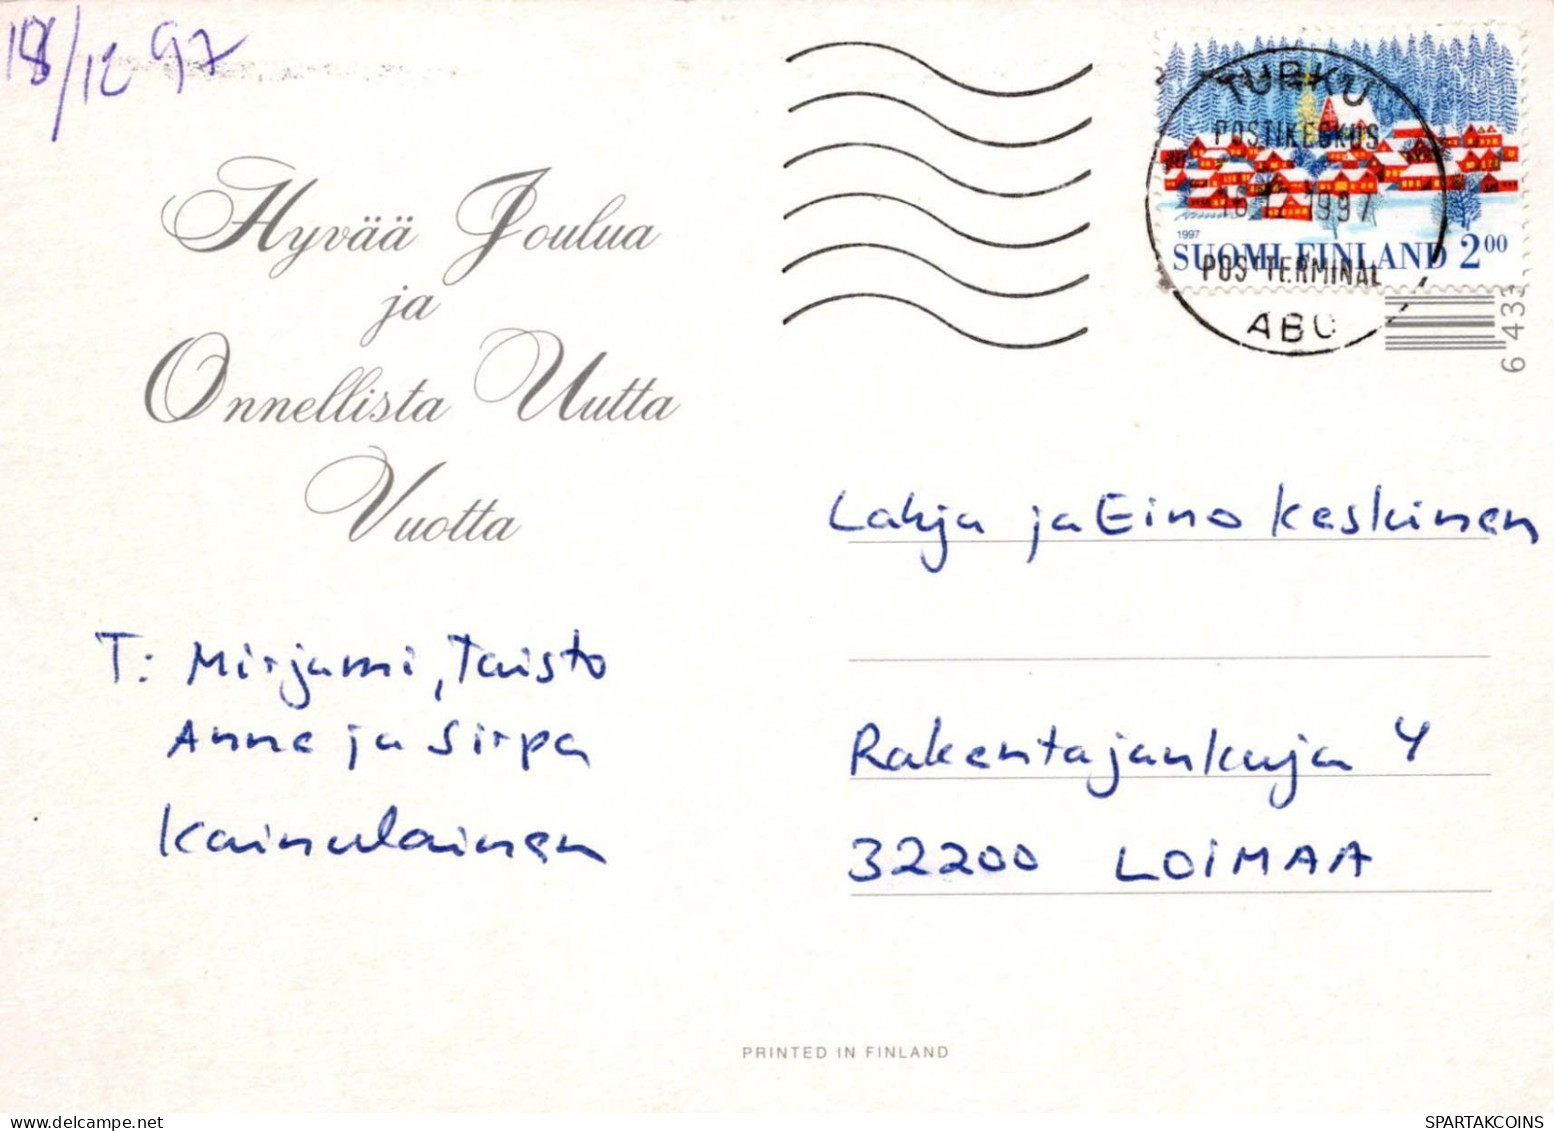 18/12 97
Hyvää Joulua
ja
Onnellista Uutta
Vuotta
T: Mirjami, Taisto
Anne ja Sirpa
Kainulainen
TURKU
POSTIKESKUS
1997
POSTTERMINAL
ÅBO
1997
SUOMI FINLAND 200
6 433
Lahja ja Eino Keskinen
Rakentajankuja 4
32200 LOIMAA
PRINTED IN FINLAND
delcampe.net
SPARTAKCOINS